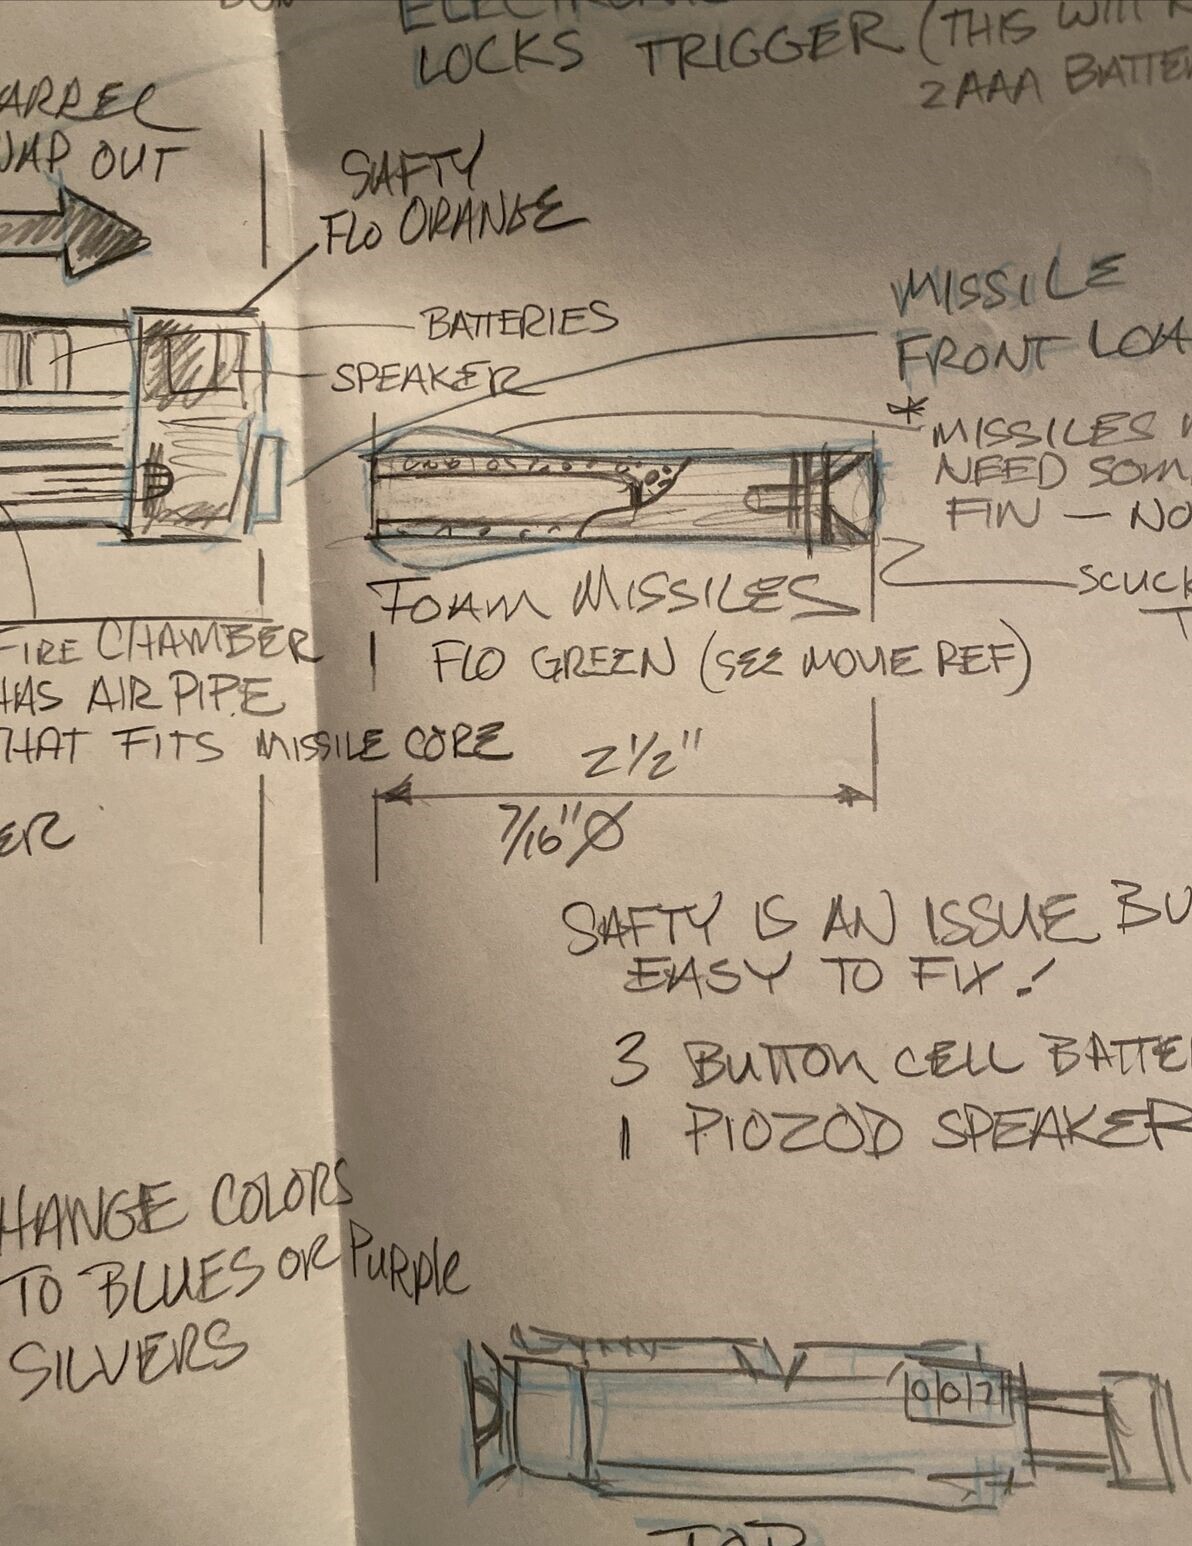 LOCKS TRIGGER (THIS WILL
2 AAA BATTE
ARREL
WAP OUT
SAFTY
FLO ORANGE
BATTERIES
SPEAKER
MISSILE
FRONT LOA
* MISSILES
NEED SOM
FIN — NO
SCUCK
T
FOAM MISSILES
FLO GREEN (SEE MOVIE REF)
FIRE CHAMBER
HAS AIR PIPE
THAT FITS MISSILE CORE
2 1/2"
7/16" Ø
ER
SAFTY IS AN ISSUE BU
EASY TO FIX!
3 BUTTON CELL BATTE
1 PIOZOD SPEAKER
HANGE COLORS
TO BLUES OR PURPLE
SILVERS
007
TOP